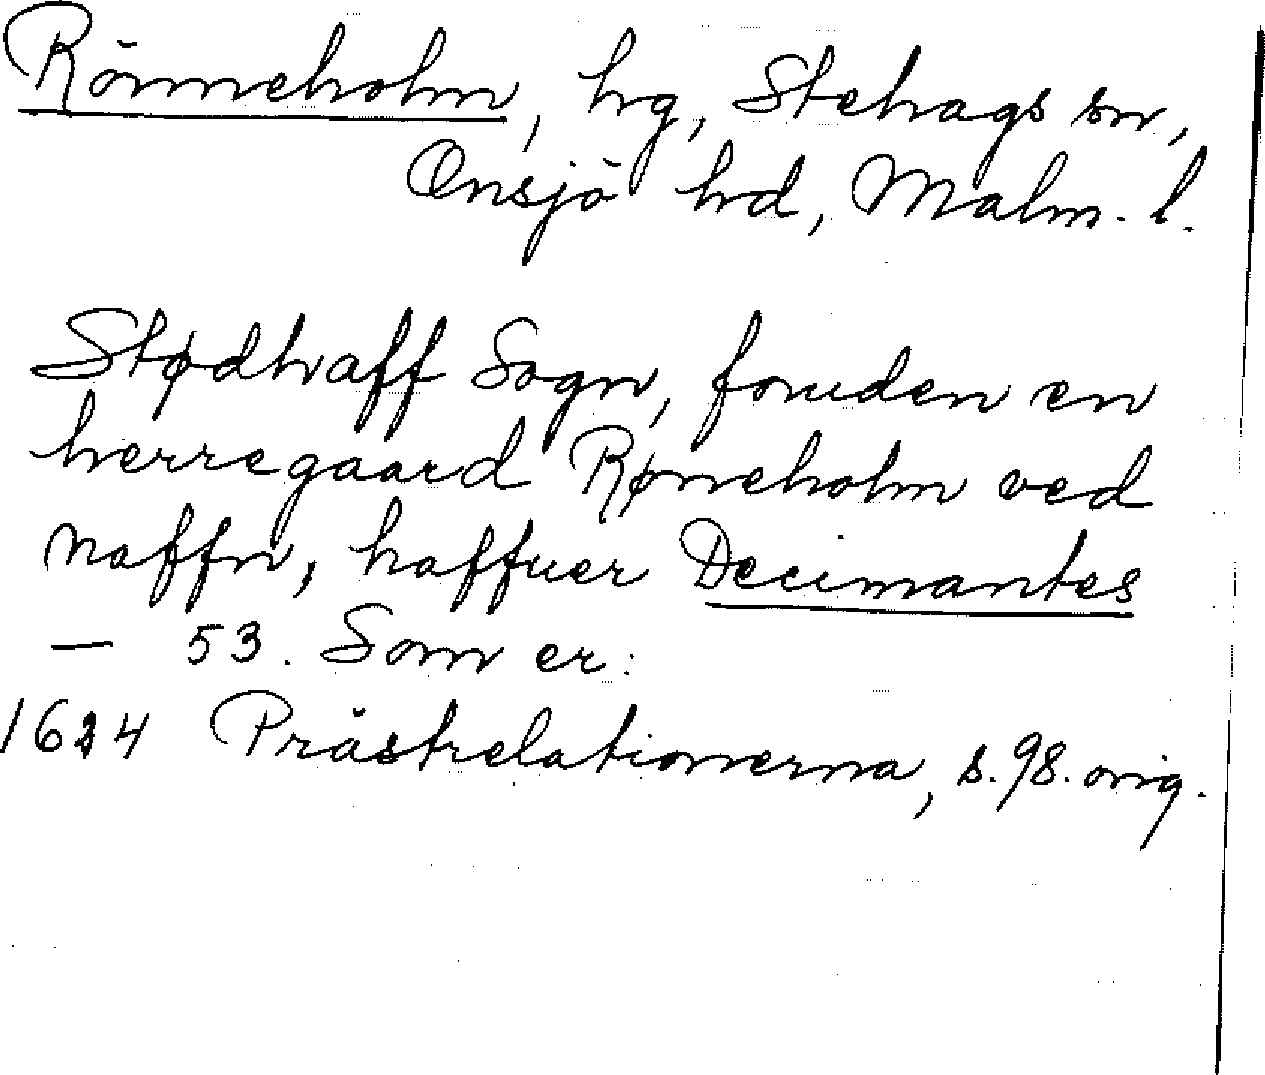 Rönneholm, hg, Stehags sn,
Onsjö hd, Malm. l.
Stødhaff Sogn, foruden en
herregaard Rønneholm ved
naffn, haffuer Decimantes
— 53. Som er:
1624 Prästrelationerna, s. 98. orig.